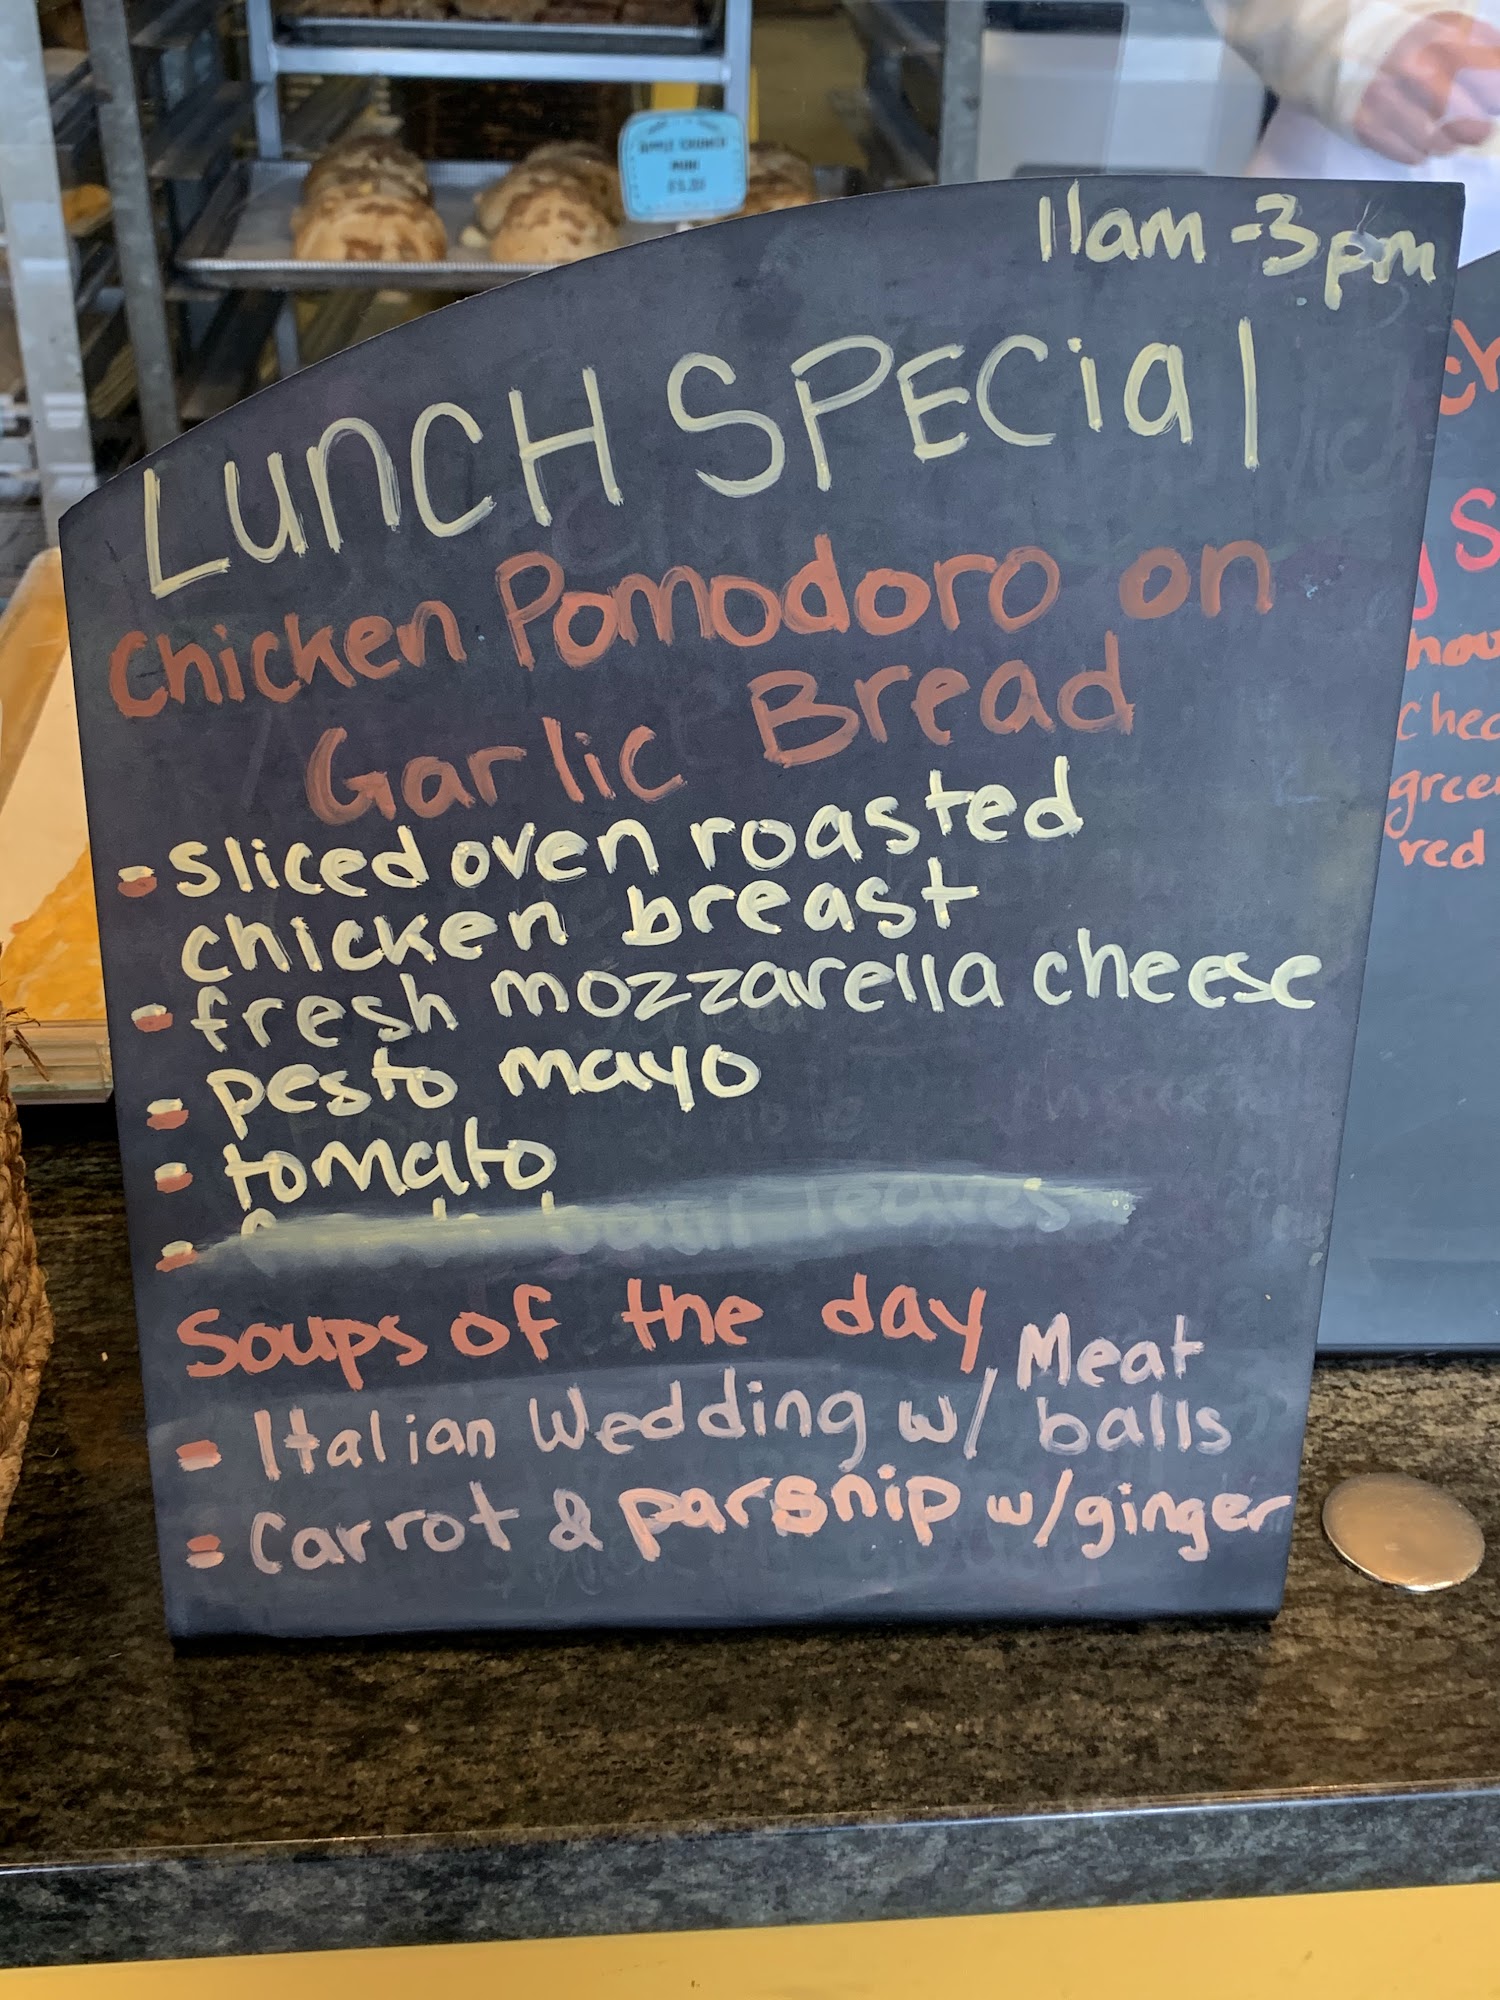 11am - 3pm
LUNCH SPECial
Chicken Pomodoro on
Garlic Bread
- sliced oven roasted
chicken breast
- fresh mozzarella cheese
- pesto mayo
- tomato
- basil leaves
Soups of the day
- Italian Wedding w/ Meat
balls
- Carrot & parsnip w/ginger
S
Chee
green
red